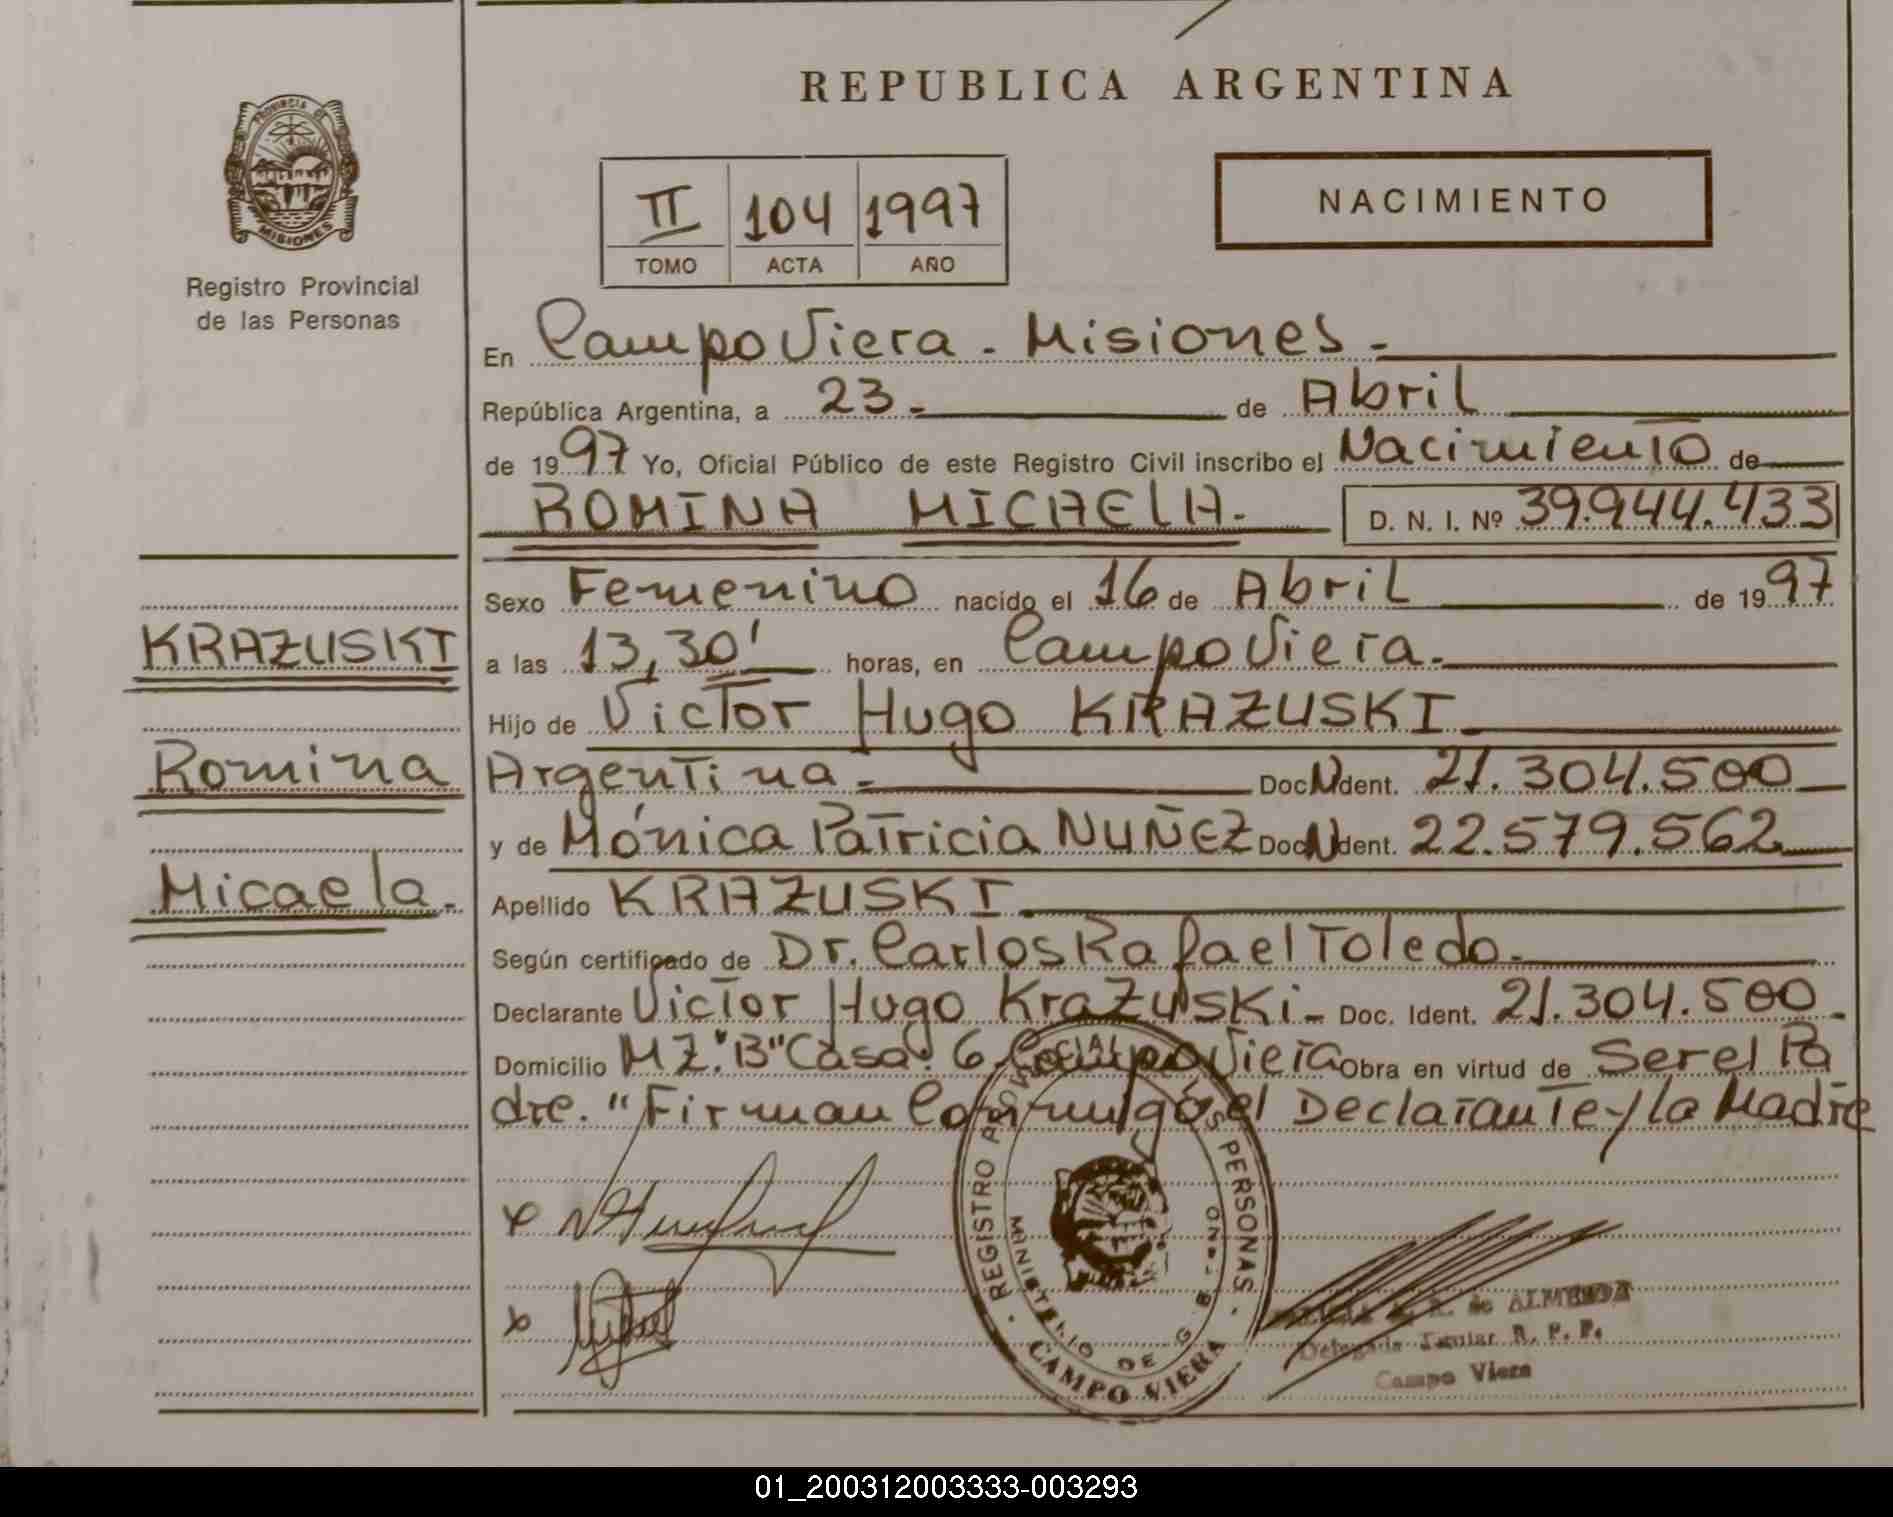 REPUBLICA ARGENTINA
PROVINCIA DE
MISIONES
Registro Provincial
de las Personas
II 104 1997
TOMO ACTA AÑO
NACIMIENTO
En Campo Viera - Misiones -
República Argentina, a 23 - de Abril
de 1997 Yo, Oficial Público de este Registro Civil inscribo el Nacimiento de
ROMINA MICAELA - D. N. I. Nº 39.944.433
Sexo Femenino nacido el 16 de Abril de 1997
a las 13,30' horas, en Campo Viera -
Hijo de Victor Hugo KRAZUSKI
Argentina - Doc. N Ident. 21.304.500
y de Mónica Patricia NUÑEZ Doc. N Ident. 22.579.562
Apellido KRAZUSKI
Según certificado de Dr. Carlos Rafael Toledo -
Declarante Victor Hugo Krazuski - Doc. Ident. 21.304.500
Domicilio MZ: "B" Casa: 6. Campo Viera Obra en virtud de Ser el Pa
dre. "Firman Conmigo el Declarante y la Madre
KRAZUSKI
Romina
Micaela -
REGISTRO PROVINCIAL PERSONAS
MINISTERIO DE
CAMPO VIERA
de ALMEIDA
Delegada Titular R. P. P.
Campo Viera
01_200312003333-003293